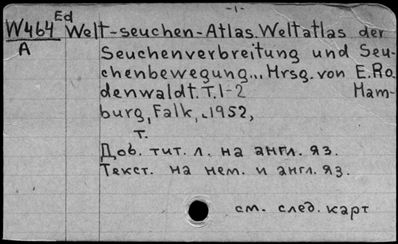 -1-
Ed
W464 Welt-seuchen-Atlas. Weltatlas der
A Seuchenverbreitung und Seu-
chenbewegung... Hrsg. von E. Ro-
denwaldt. T. 1-2 Ham-
burg, Falk, 1952,
т.
Доб. тит. л. на англ. яз.
Текст. на нем. и англ. яз.
см. след. карт